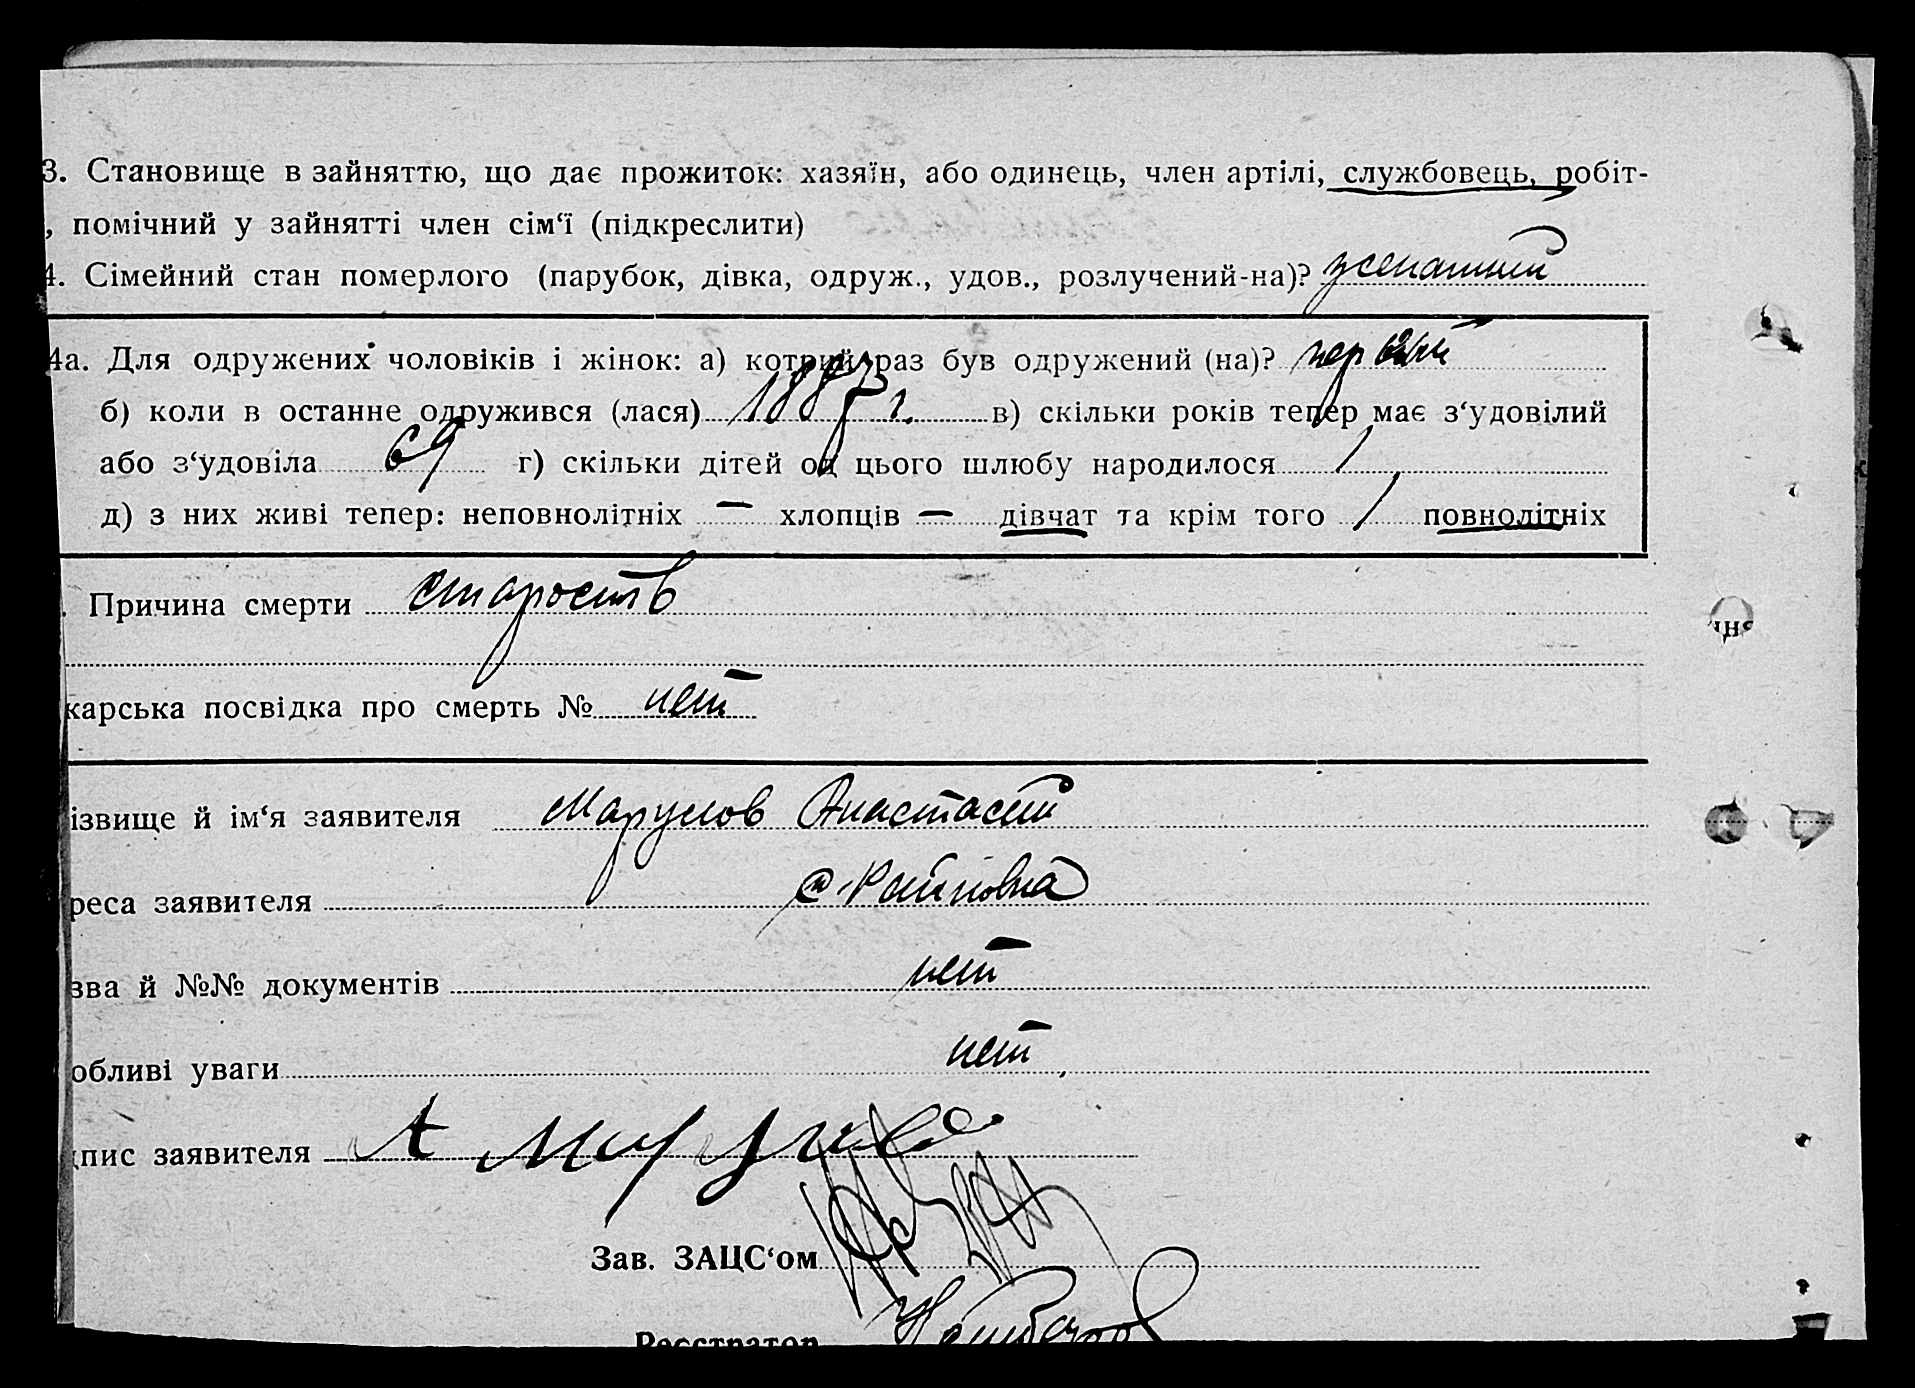 3. Становище в зайняттю, що дає прожиток: хазяїн, або одинець, член артілі, службовець, робіт-
, помічний у зайнятті член сім‘ї (підкреслити)
4. Сімейний стан померлого (парубок, дівка, одруж., удов., розлучений-на)? женатый
4а. Для одружених чоловіків і жінок: а) котрий раз був одружений (на)? первый
б) коли в останне одружився (лася) 1887 г. в) скільки років тепер має з‘удовілий
або з‘удовіла 69 г) скільки дітей од цього шлюбу народилося 1
д) з них живі тепер: неповнолітніх — хлопців — дівчат та крім того 1 повнолітніх
. Причина смерти старость
карська посвідка про смерть № нет
ізвище й ім‘я заявителя Марулов Анастасий
реса заявителя с.
зва й №№ документів нет
обливі уваги нет
дпис заявителя А
Зав. ЗАЦС‘ом
Реєстратор